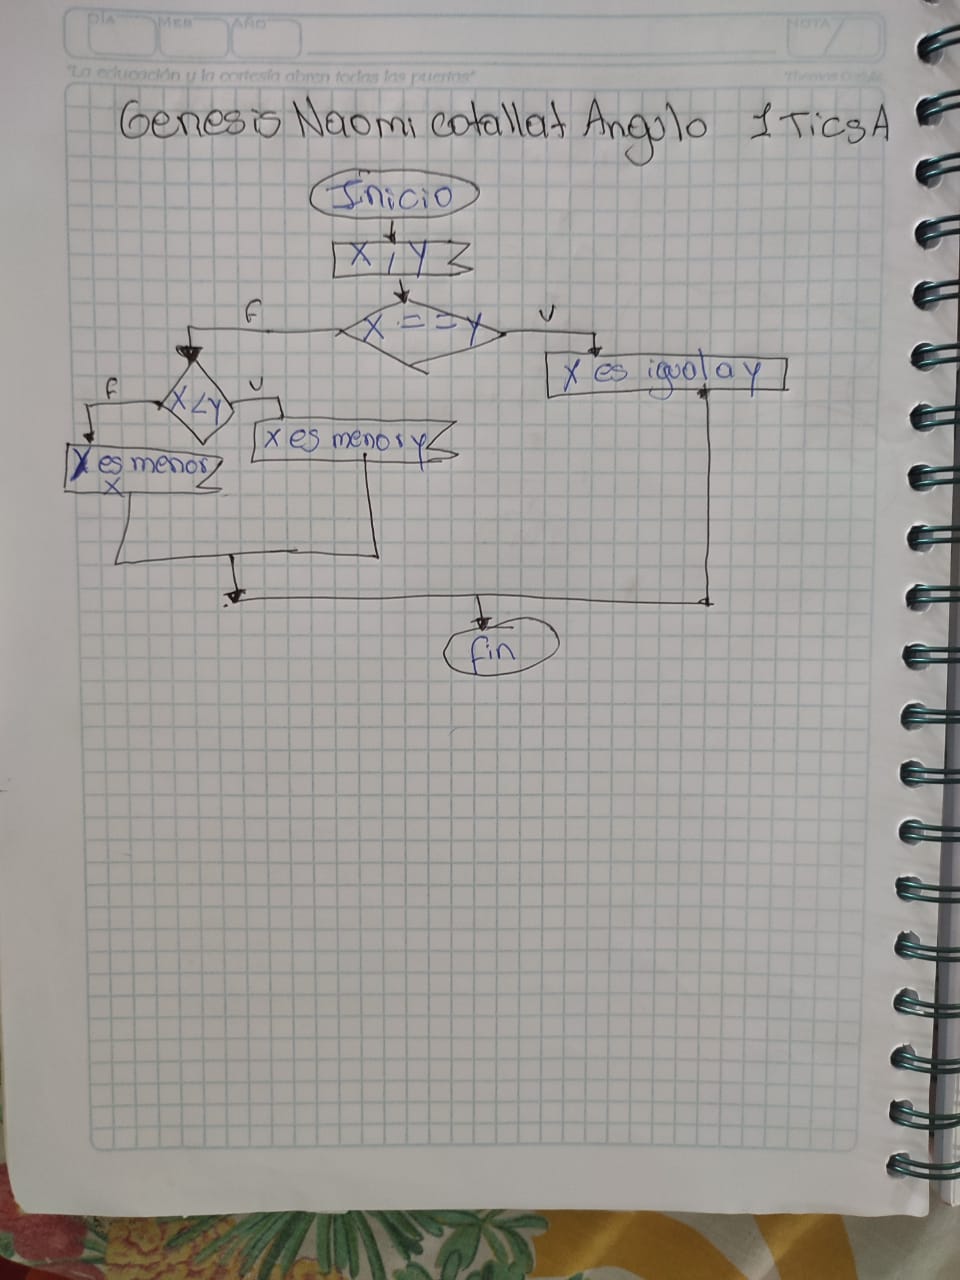 DÍA MES AÑO NOTA
"La educación y la cortesía abren todas las puertas"
Genesis Naomi cotallat Angulo 1 Tics A
Inicio
X , Y
F X == Y V
X es igual a y
F X < Y V
X es menor y
Y es menor
X
fin